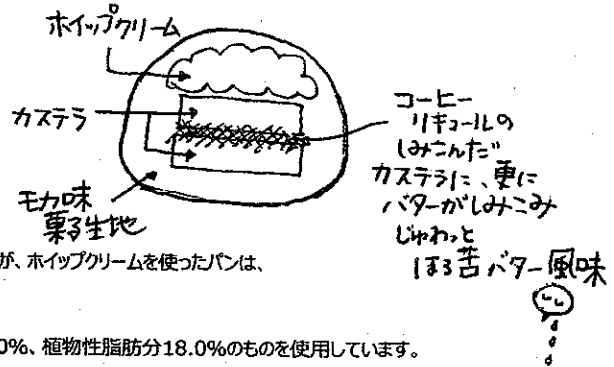 ホイップクリーム
カステラ
モカ味
菓子生地
コーヒー
リキュールの
しみこんだ
カステラに、更に
バターがしみこみ
じゅわっと
ほろ苦バター風味
が、ホイップクリームを使ったパンは、
0%、植物性脂肪分18.0%のものを使用しています。